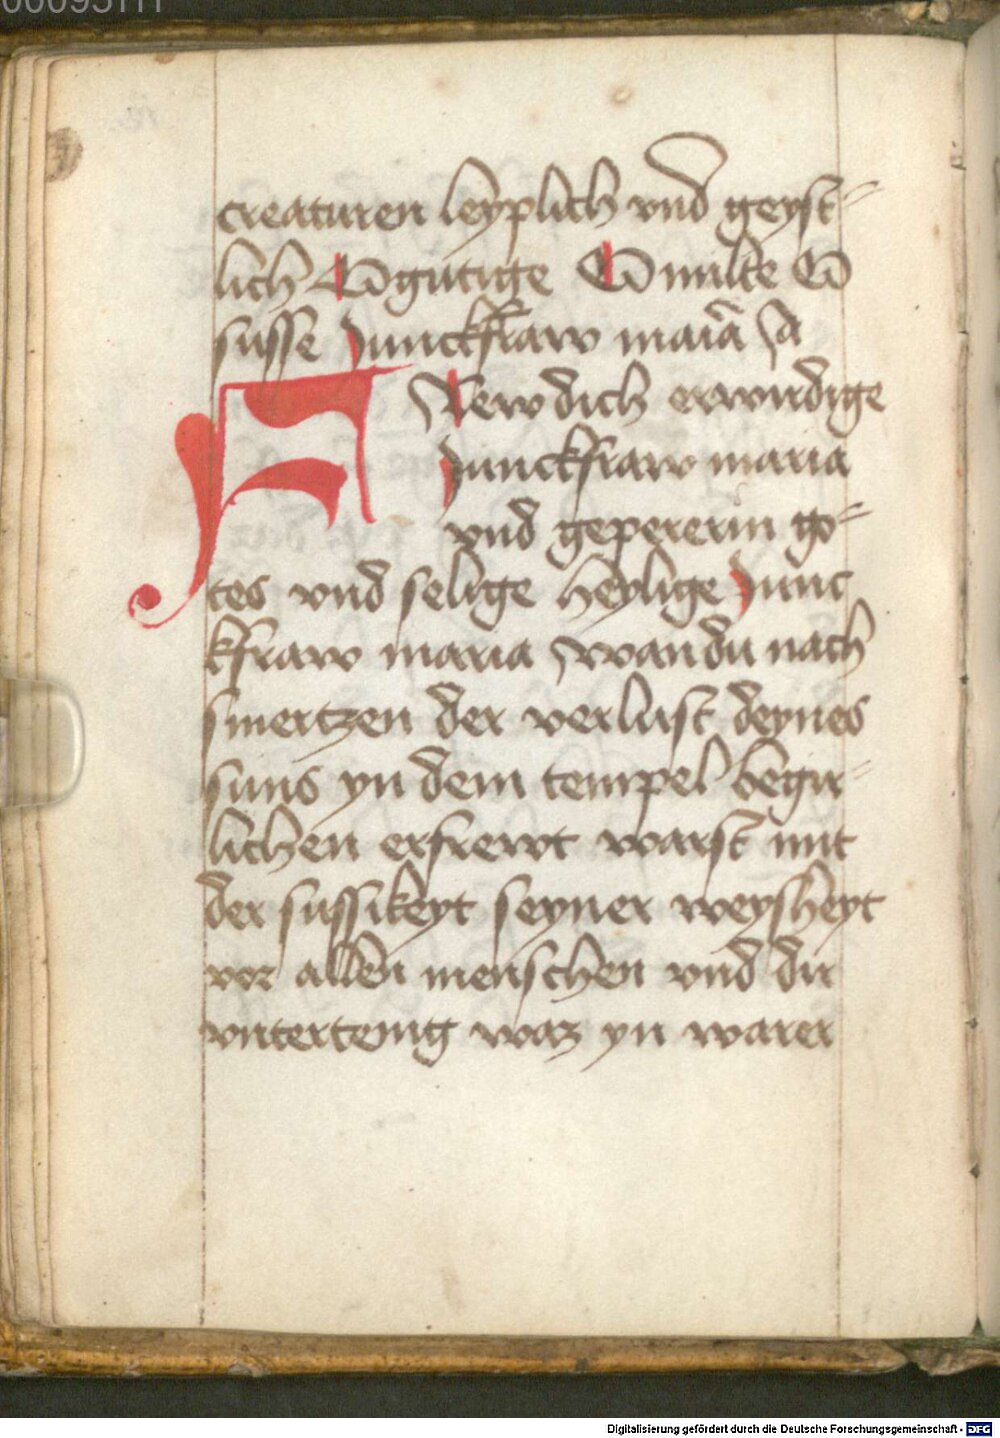 00093111
creaturen leyplich vnd geyst=
lich O gutige O milte O
susse Junckfraw maria A
FRew dich erwirdige
Junckfraw maria
vnd gepererin go=
tes vnd selige heylige Junc
kfraw maria wan du nach
smertzen der verlust deynes
suns yn dem tempel begir=
lichen erfrewt warst mit
der sussikeyt seyner weysheyt
vor allen menschen vnd dir
vntertenig waz yn warer
Digitalisierung gefördert durch die Deutsche Forschungsgemeinschaft - DFG